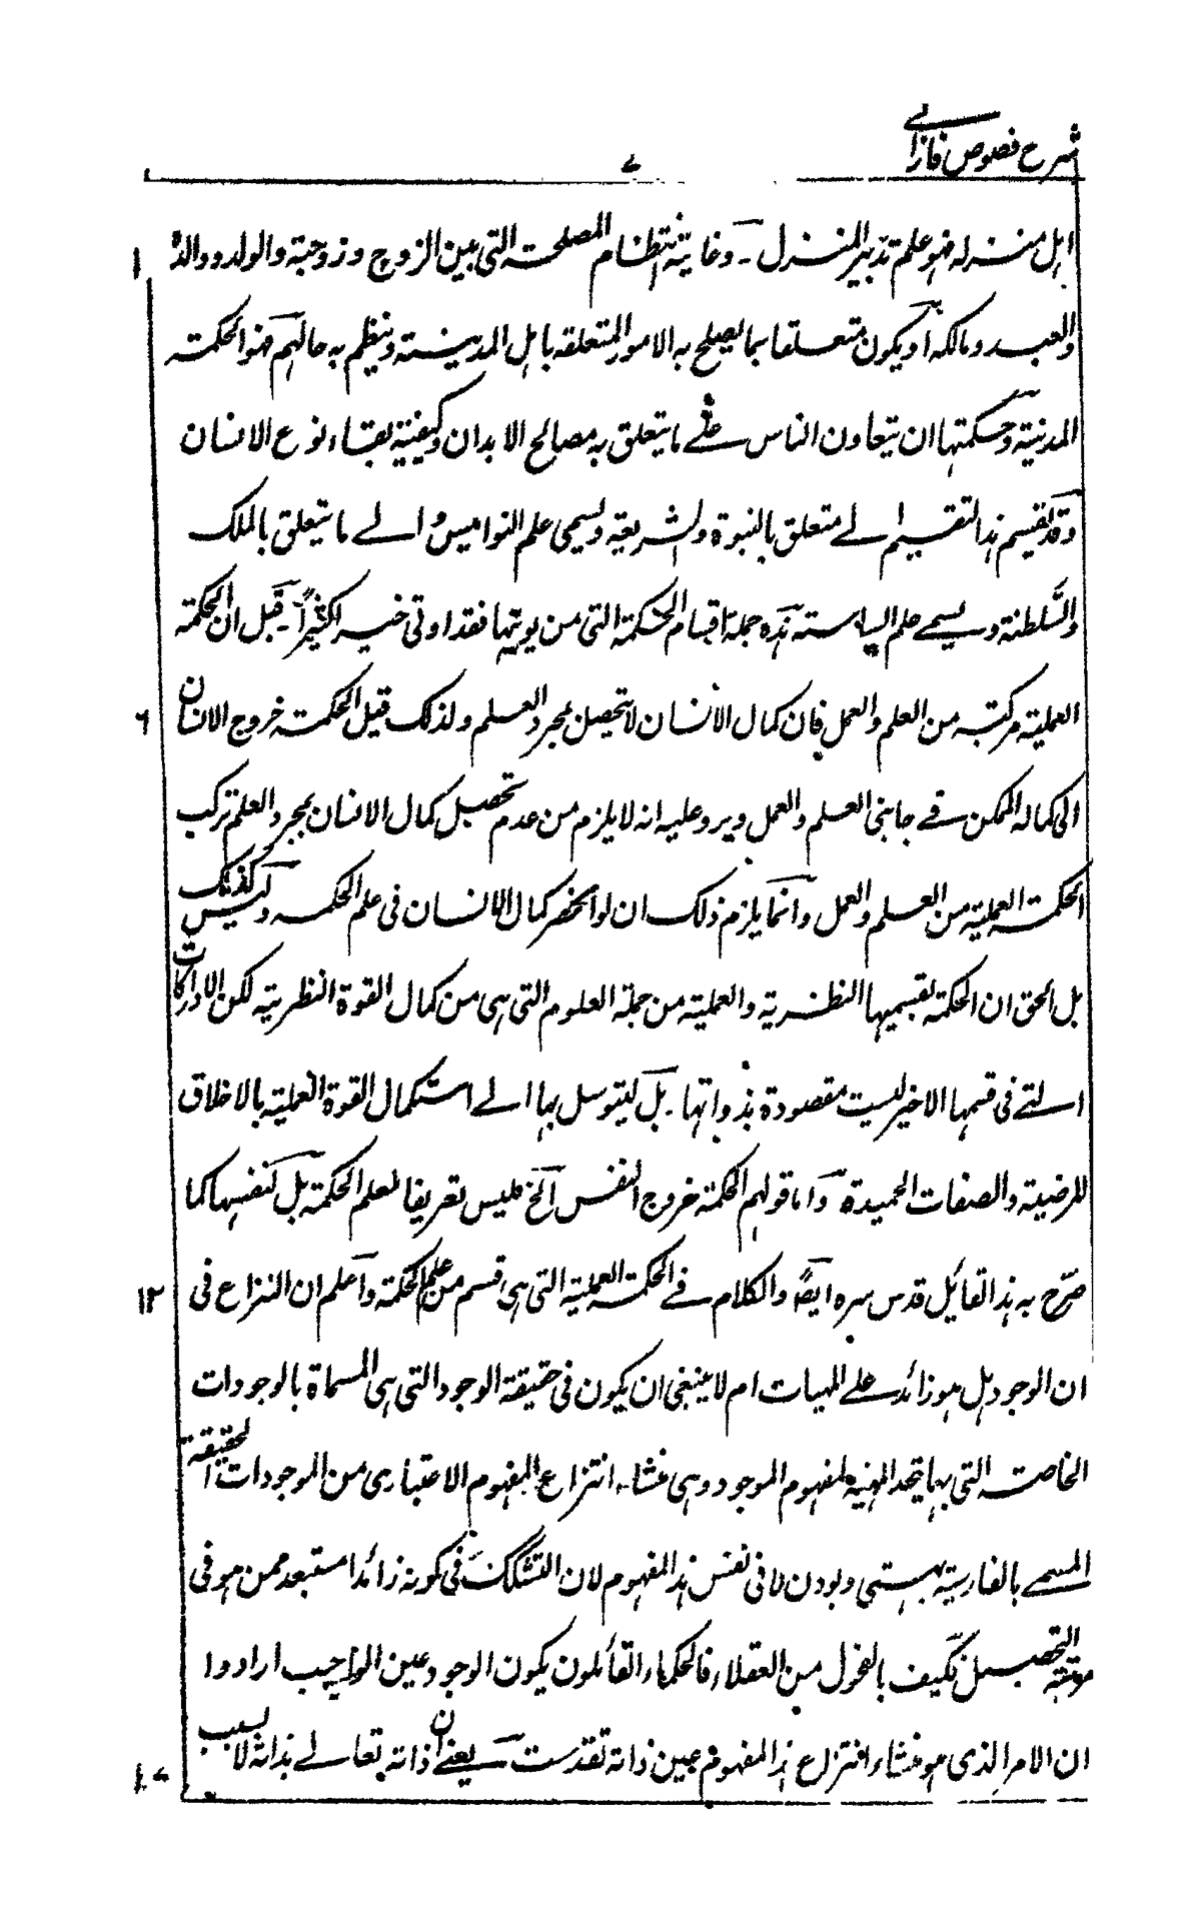 شرح فصوص فارابے
۷
اہل منزلہ فہو علم تدبیر المنزل ـ وغایتہ انتظام المصلحۃ التی بین الزوج وزوجتہ والولد ووالدہ
۱
والعبد ومالکہ او یکون متعلقا بما یصلح بہ الامور المتعلقہ باہل المدینۃ وینظم بہ حالہم فہو الحکمۃ
المدنیۃ وحکمتہا ان یتعاون الناس علے ما یتعلق بہ مصالح الابدان وکیفیۃ بقاء نوع الانسان
وقد یقسم ہذا القسم الے متعلق بالنبوۃ والشریعۃ ویسمی علم النوامیس والے ما یتعلق بالملک
والسلطنۃ ویسمے علم السیاستہ ہذہ جملۃ اقسام الحکمۃ التی من یوتہا فقد اوتی خیرا کثیراً ـ قیل ان الحکمۃ
العملیۃ مرکبۃ من العلم والعمل فان کمال الانسان لا تحصیل بمجرد العلم ولذلک قیل الحکمۃ خروج الانسان
۶
الی کمالہ الممکن فے جانبی العلم والعمل ویرد علیہ انہ لا یلزم من عدم تحصیل کمال الانسان بمجرد العلم ترکب
الحکمۃ العملیۃ من العلم والعمل وانما یلزم ذلک ان لو انحصر کمال الانسان فی علم الحکمہ ولیس کذلک
بل الحق ان الحکمۃ بقسمیہا النظریۃ والعملیۃ من جملۃ العلوم التی ہی من کمال القوۃ النظریۃ لکن الادراکات
التے فی قسمہا الاخیر لیست مقصودۃ بذواتہا ـ بل لیتوسل بہا الے استکمال القوۃ العملیۃ بالاخلاق
للرضیۃ والصفات الحمیدۃ واما قولہم الحکمۃ خروج النفس الخ فلیس تعریفا لعلم الحکمۃ بل لنفسہا کما
صرّح بہ ہذا القائل قدس سرہ ایضاً والکلام فے الحکمۃ العملیۃ التی ہی قسم من علم الحکمۃ واعلم ان النزاع فی
۱۲
ان الوجود ہل ہو زائد علے المہیات ام لا ینبغی ان یکون فی حقیقۃ الوجود التی ہی المسماۃ بالوجودات
الخاصۃ التی بہا یتحد المہیۃ لمفہوم الموجود وہی منشاء انتزاع المفہوم الاعتباری من الموجودات الحقیقۃ
المسمے بالفارسیۃ بہستی وبودن لا فی نفس ہذا المفہوم لان التشکک فی کونہ زائدا مستبعد ممن ہو فی
مرتبۃ التحصیل فکیف بالفحول من العقلاء فالحکماء القائلون بکون الوجود عین الواجب ارادوا
ان الامر الذی ہو منشاء انتزاع ہذا المفہوم عین ذاتہ تقدست یعنے ان ذاتہ تعالے بذاتہ لا بسبب
۱۷